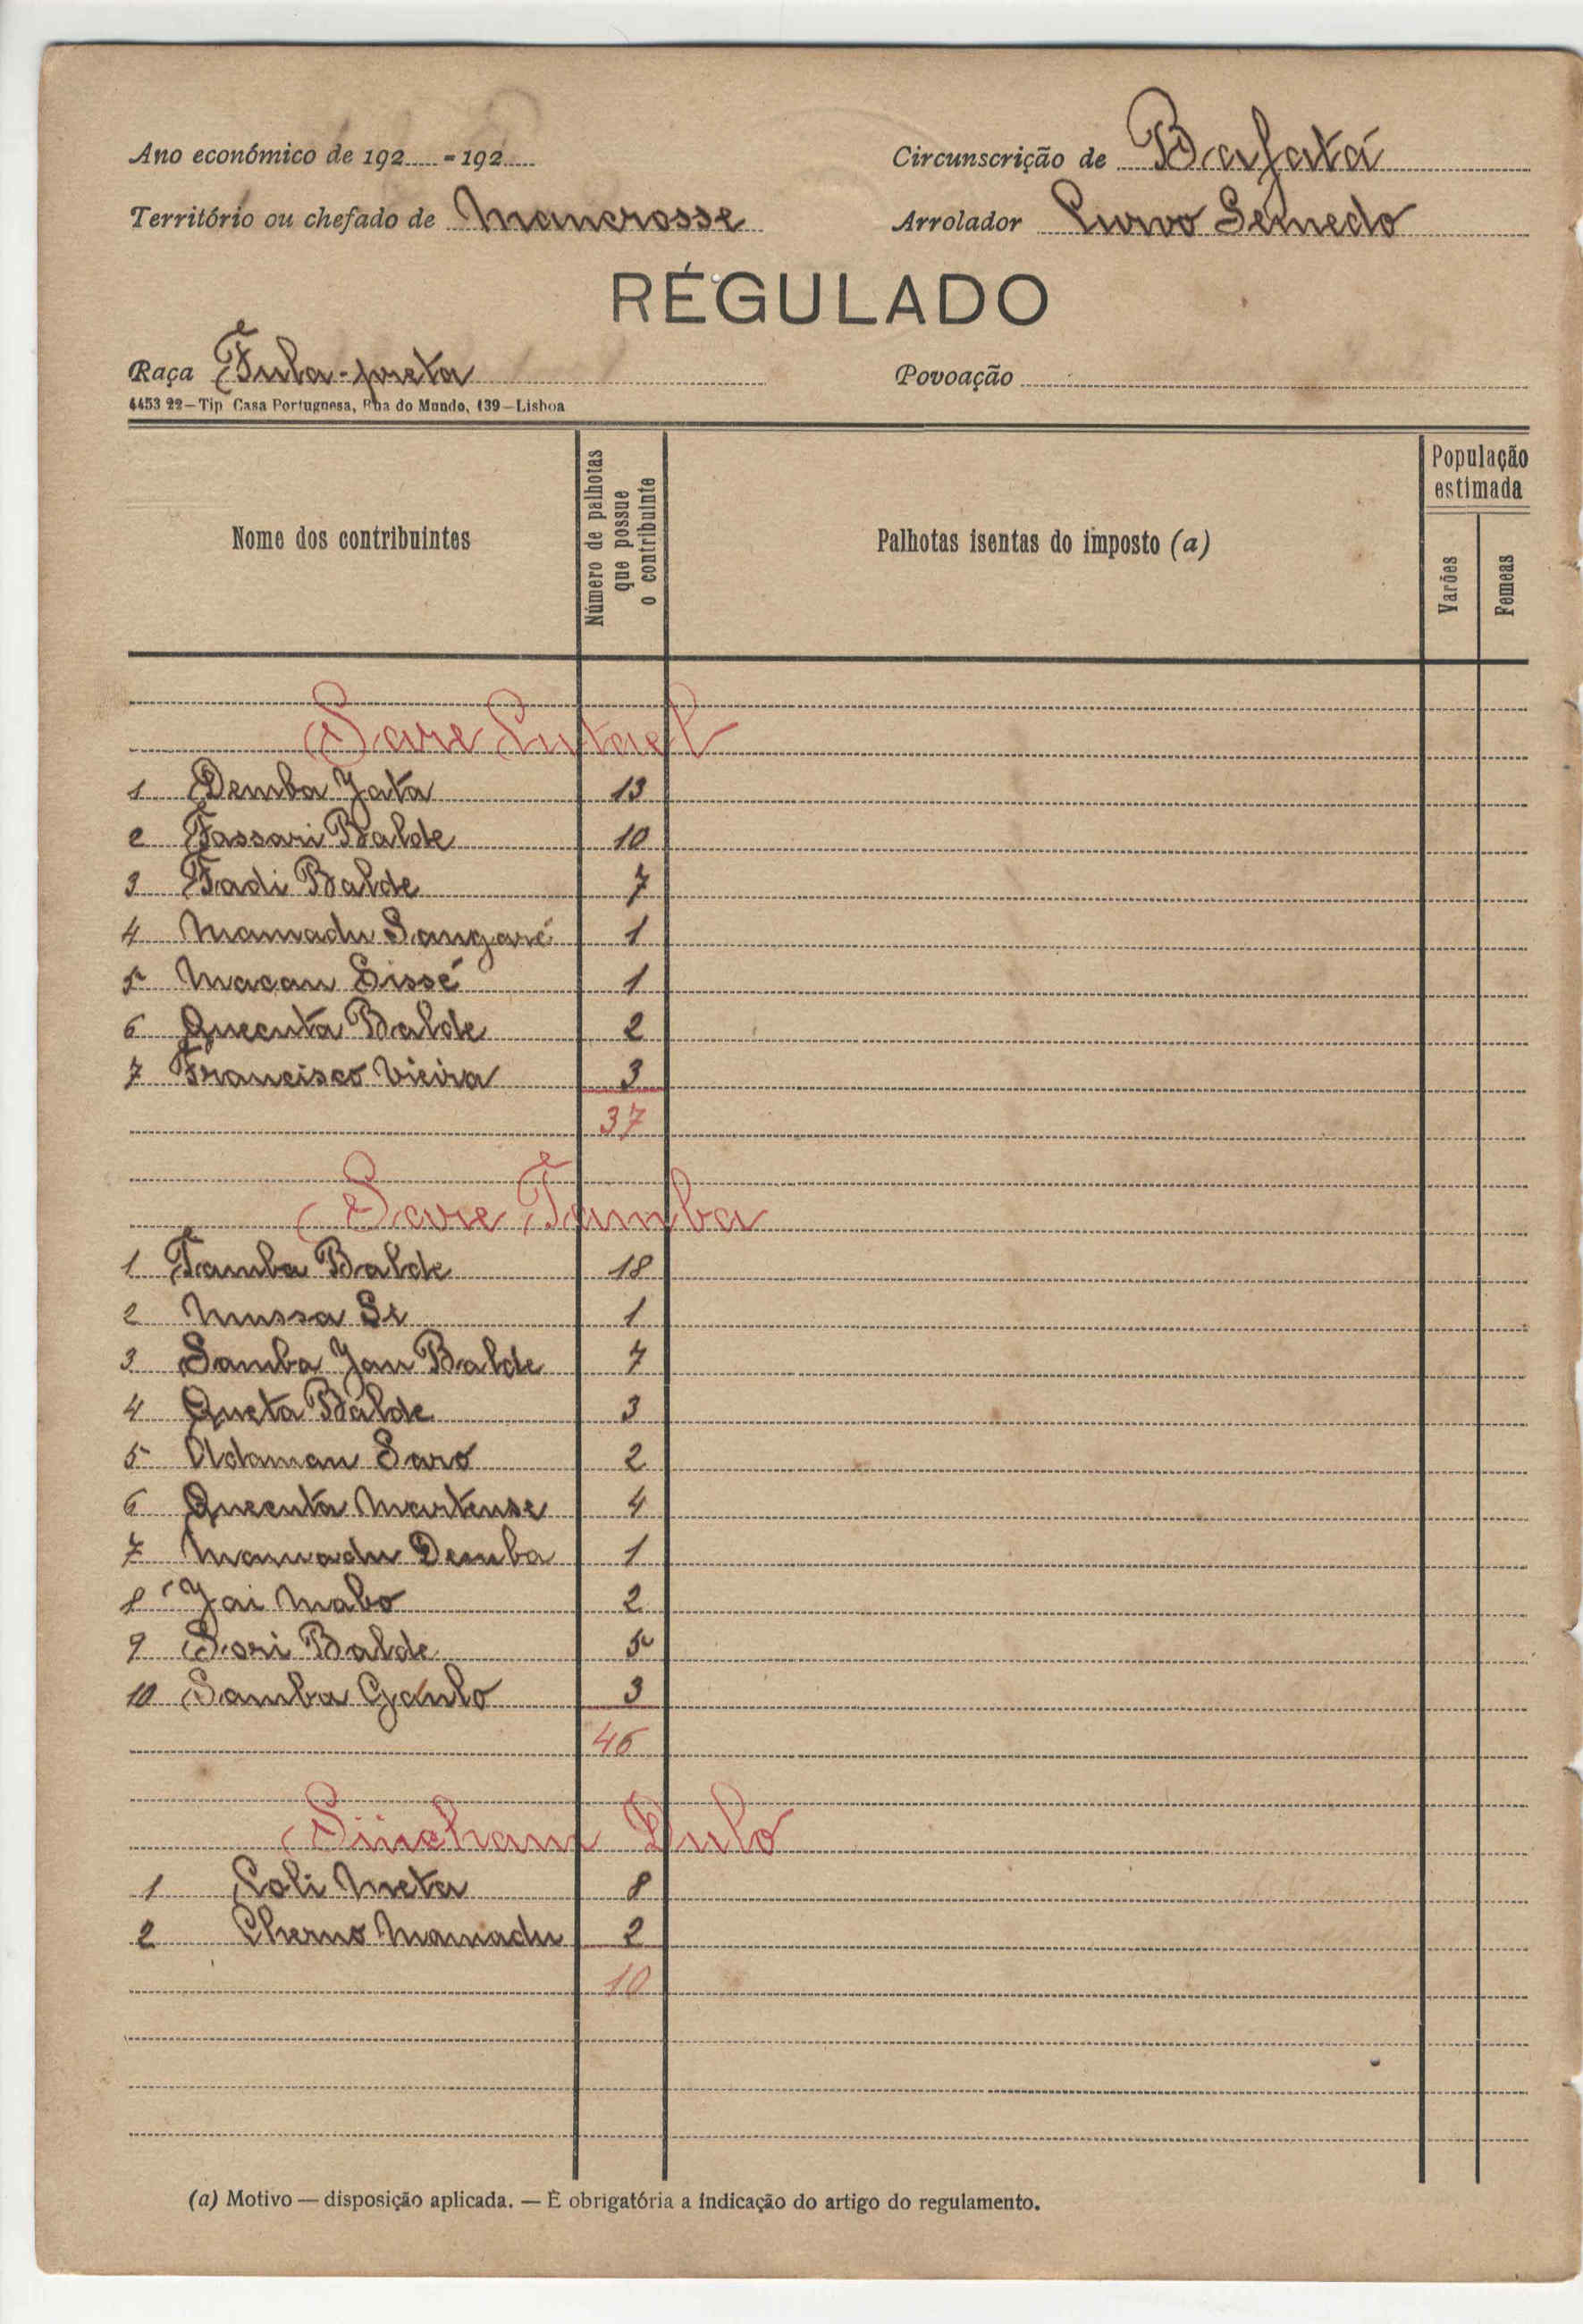 Ano económico de 192..... - 192.....
Circunscrição de Bafatá
Território ou chefado de Mancrosse
Arrolador Curvo Semedo
RÉGULADO
Raça Fula-preta
Povoação
4453 22—Tip Casa Portuguesa, Rua do Mundo, 139—Lisboa
Nome dos contribuintes
Número de palhotas que possue o contribuinte
Palhotas isentas do imposto (a)
População estimada
Varões
Femeas
Sare
1 Demba Jata 13
2 Tassari Balde 10
3 Fadi Balde 7
4 Mamadu Sangaré 1
5 Macau Sissé 1
6 Quecuta Balde 2
7 Francisco Vieira 3
37
Sare Tamba
1 Tamba Balde 18
2 Mussa Si 1
3 Samba Jau Balde 7
4 Queta Balde 3
5 Adaman Saro 2
6 Quecuta 4
7 Mamadu Demba 1
8 Jai Mabo 2
9 Sori Balde 5
10 Samba Gaulo 3
46
Sincham Dulo
1 Coli Meta 8
2 Cherno Mamadu 2
10
(a) Motivo — disposição aplicada. — É obrigatória a indicação do artigo do regulamento.